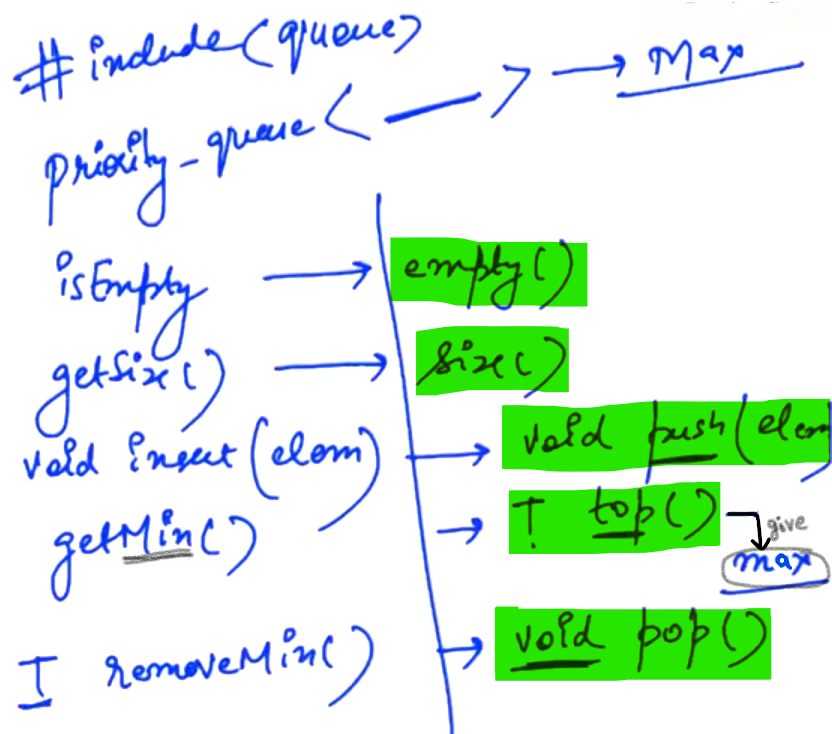 #include(queue)
priority_queue < — > → Max
isEmpty → empty()
getSize() → size()
void insert(elem) → void push(elem
getMin() → T top() give max
T removeMin() → void pop()